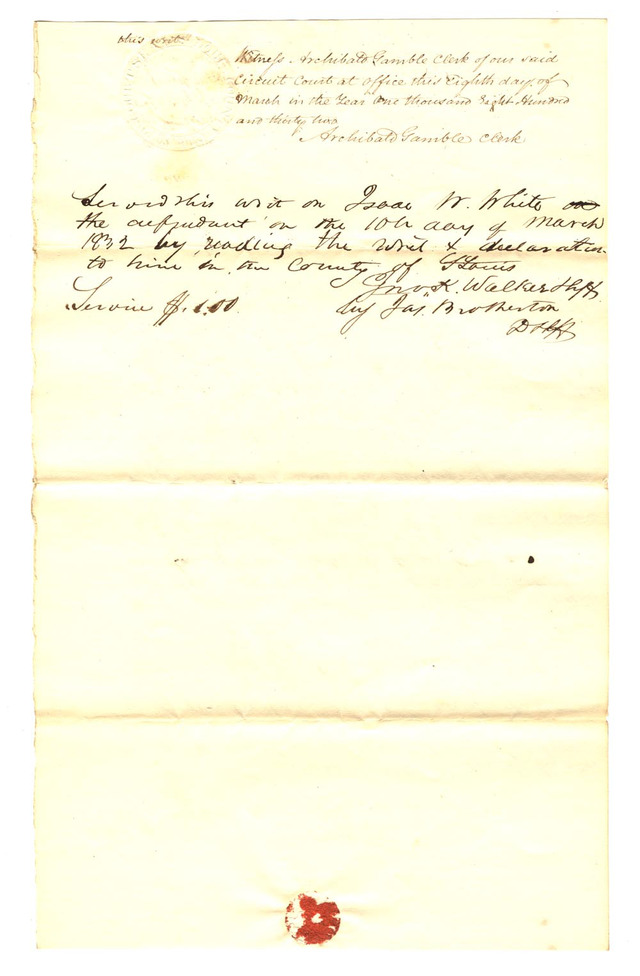 this writ.
Witness. Archibald Gamble Clerk of our said
Circuit Court at office this Eighth day of
March in the Year One thousand Eight Hundred
and thirty two
Archibald Gamble Clerk
Served this writ on Isaac W. White on
the defendant on the 10th day of March
1832 by reading the writ & declaration
to him in the County of St Louis
Jno K. Walker Shff
Service $1.00 by Jas. Brotherton
D Shff